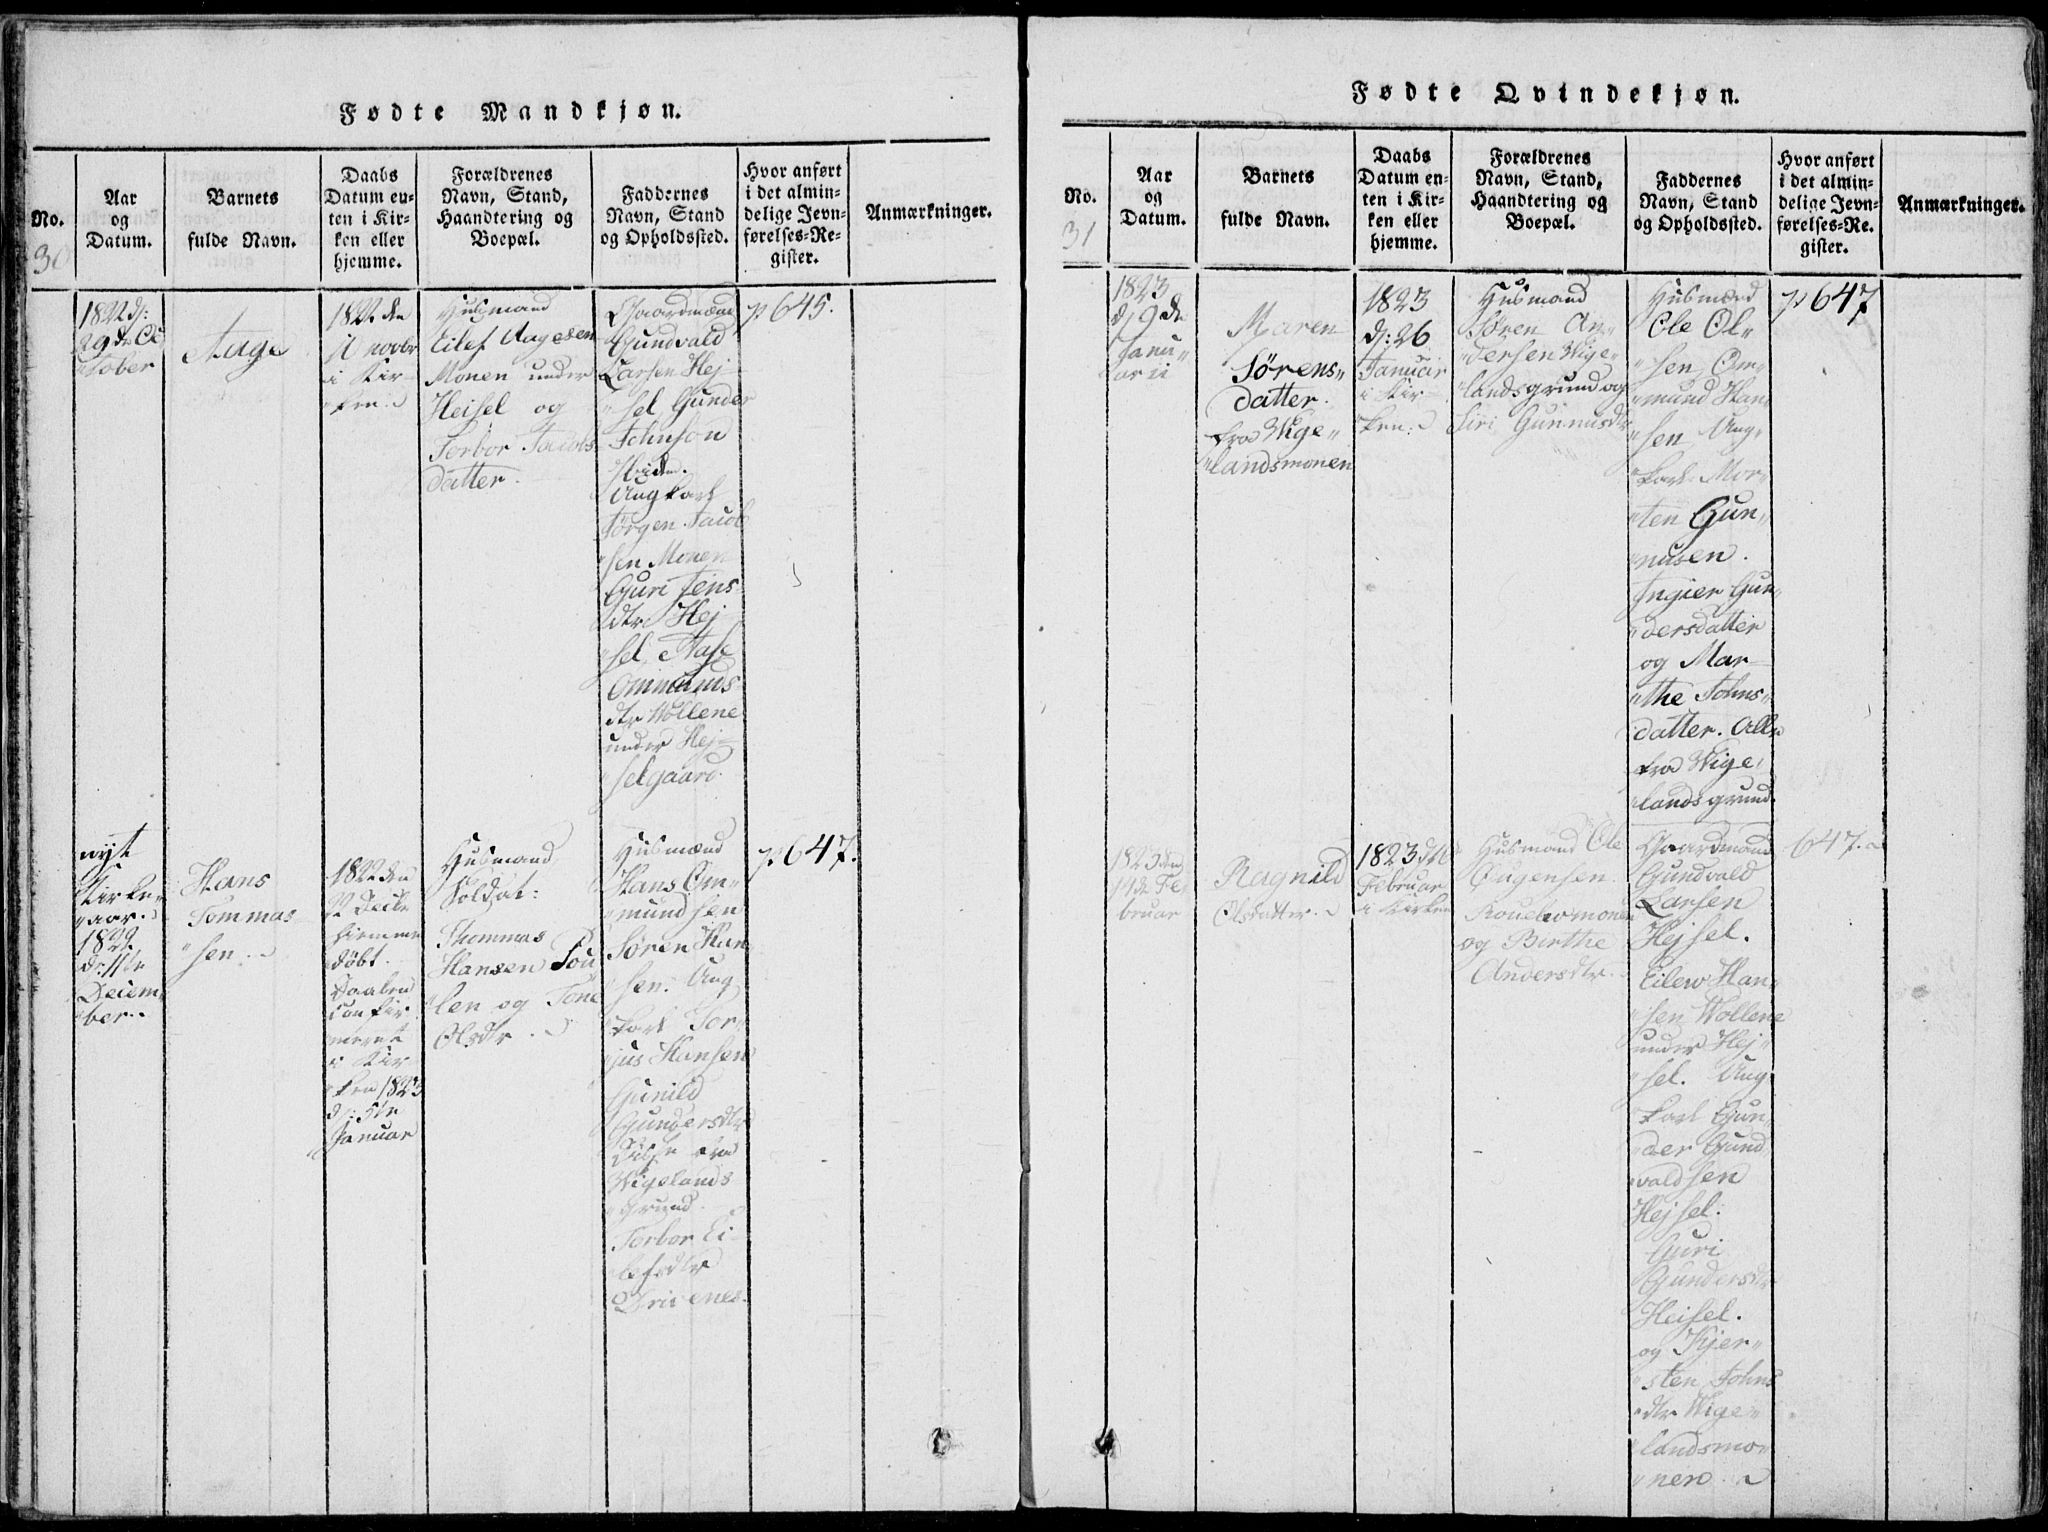 Fødte Mandkjøn.
No.
30
Aar
og
Datum.
Barnets
fulde Navn.
Daabs
Datum en-
ten i Kir-
ken eller
hjemme.
Forældrenes
Navn, Stand,
Haandtering og
Boepæl.
Faddernes
Navn, Stand
og Opholdssted.
Hvor anført
i det almin-
delige Jevn-
førelses-Re-
gister.
Anmærkninger.
1822 dj:
29de Oc
"tober
Aage
1822 den
novbr
i Kir-
"ken.
Husmand
Eilef Aagesen
Monen under
Heisel og
Torbor Jacobs-
datter.
Gaardmænd
Gundvald
Larsen Hej-
"sel, Gunder
Johnson
ibidem.
Ungkarl
Jørgen Jacob
"sen Monen
Guri Jens-
dtr Hej
"sel, Aase
Ommunds
dtr Wollene
under Hej-
"selgaard.
p 645.
nyt
Kirke-
"aar.
1822
d: 11te
Decem-
"ber.
Hans
Tommas
"sen.
1822 den
Decbr
hiemme
døbt.
Daaben
confir-
meret
i Kir
"ken 1823
dj: 5te
Januar
Husmand
Soldat:
Thommas
Hansen Fou
"len og Tone
Olsdtr.
Husmænd
Hans Om-
"mundsen
Søren Han
"sen. Ung
karl Tor-
jus Hansen
Gunild
Gundersdtr
fra
Wigelands
grund.
Torbor Ei-
lefsdtr
Drivenes.
p 647.
Fødte Qvindekjøn.
No.
31
Aar
og
Datum.
Barnets
fulde Navn.
Daabs
Datum en-
ten i Kir-
ken eller
hjemme.
Forældrenes
Navn, Stand,
Haandtering og
Boepæl.
Faddernes
Navn, Stand
og Opholdssted.
Hvor anført
i det almin-
delige Jevn-
førelses-Re-
gister.
Anmærkninger.
1823
dj 9de
Janu"
"arii
Maren
Sørens"
datter.
fra Wige"
"landsmonen
1823
dj: 26
Januar
i Kir-
"ken.
Husmand
Søren An-
"dersen Wige"
"landsgrund og
Siri Gunnusdtr
Husmænd
Ole Ol"
"sen, Om"
"mund Han"
"sen Ung"
"karl Mor"
"ten Gun"
"nusen.
Ingier Gun"
"dersdatter
og Mar-
"the Johns"
datter. Alle
fra Wige"
"landsgrund.
p 647
1823 den
Fe
bruar
Ragnild
Olsdatter.
1823 d 16
Februar
i Kirken
Husmand Ole
Øugensen
Rouelvomonen
og Birthe
Andersdtr.
Gaardmand
Gundvald
Larsen
Hejsel.
Eilew Han"
"sen Wollene
under Hej"
"sel. Ung"
karl Gun"
"der Gund
"valdsen
Hejsel.
Guri
Gundersdtr
Heisel.
og Kjer"
"sten Johns
"dtr Wige"
"landsmo"
"nen.
647.